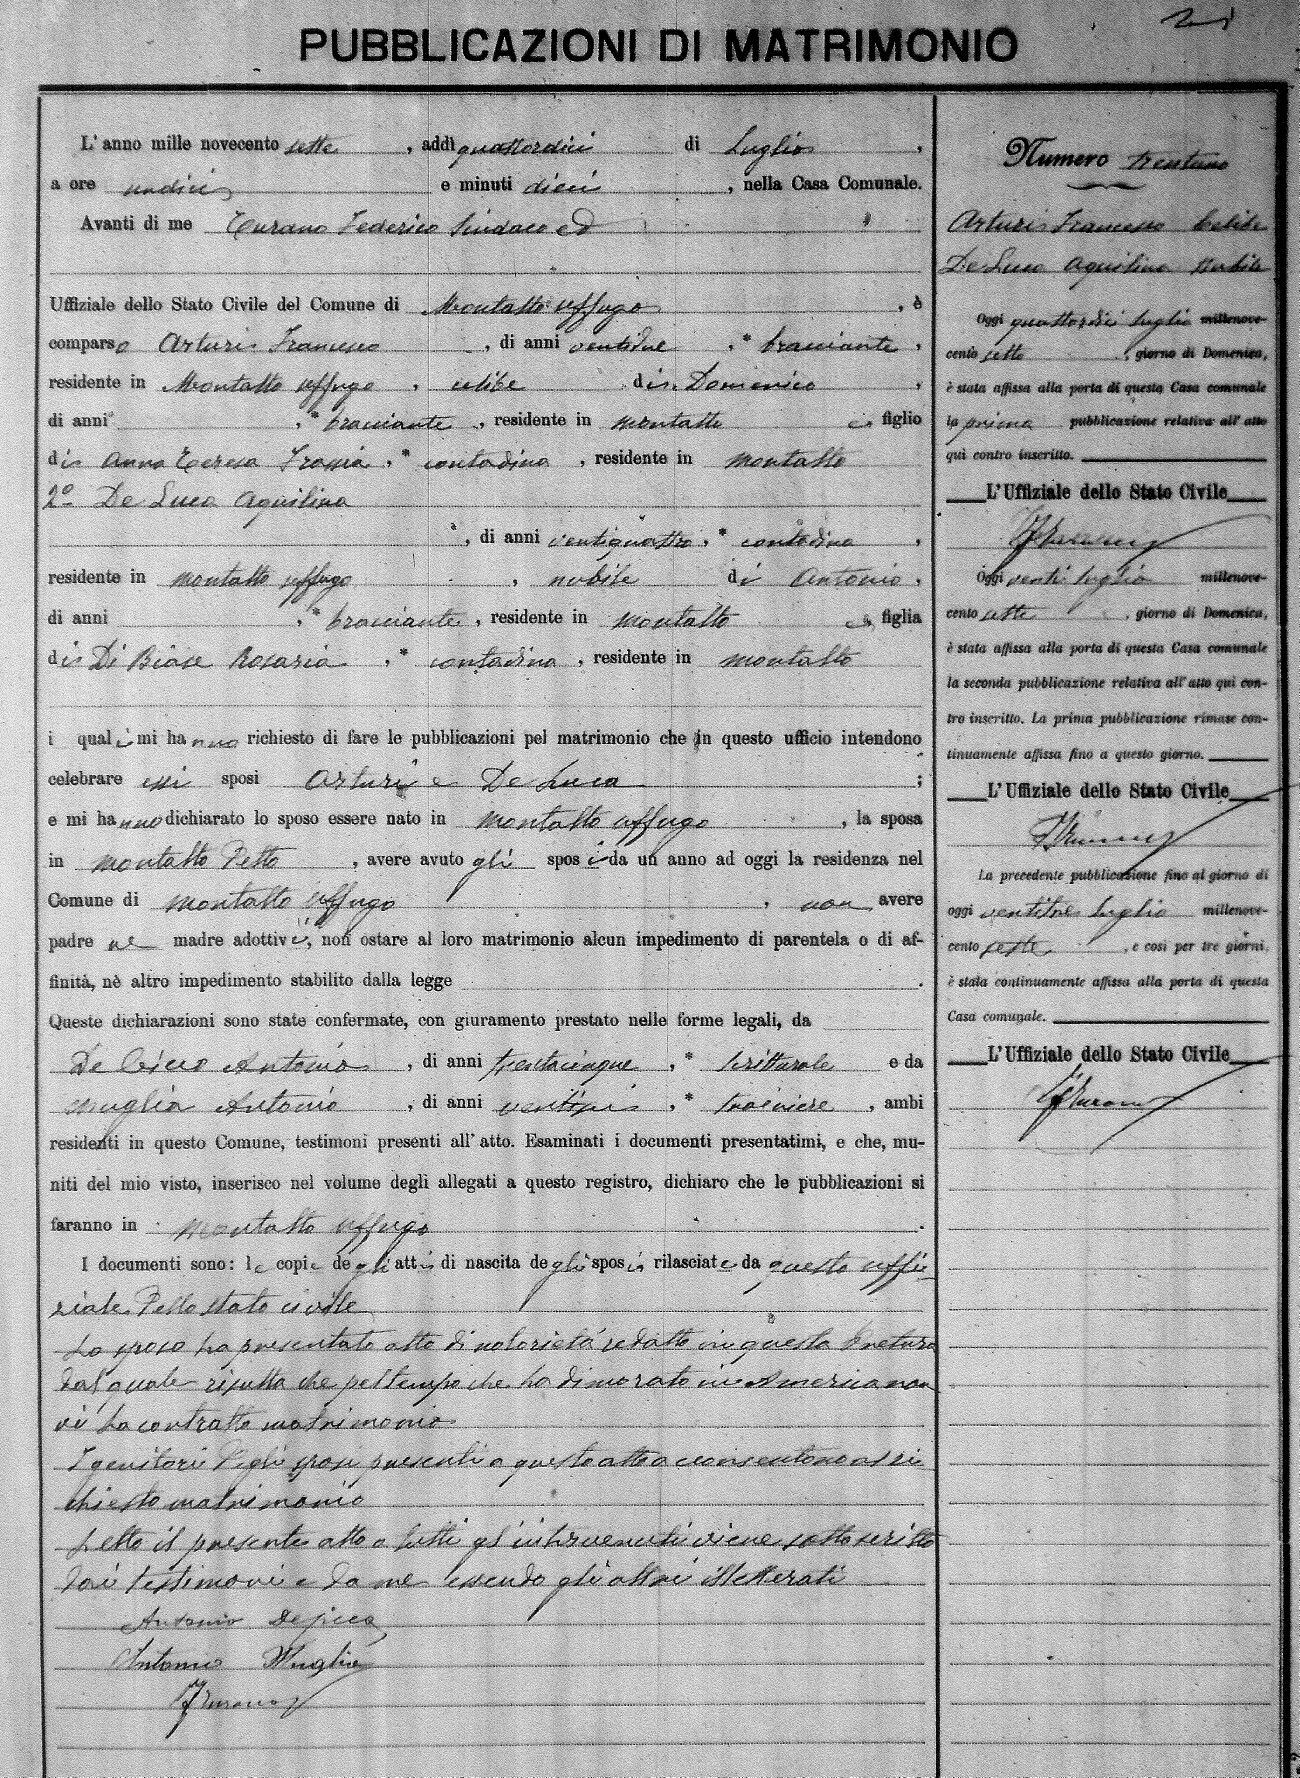 21
PUBBLICAZIONI DI MATRIMONIO
L'anno mille novecento sette, addì quattordici di Luglio,
a ore undici e minuti dieci, nella Casa Comunale.
Avanti di me Turano Federico Sindaco ed
Uffiziale dello Stato Civile del Comune di Montalto Uffugo, è
comparso Arturi Francesco, di anni ventidue, * bracciante,
residente in Montalto Uffugo, celibe di Domenico,
di anni , * bracciante, residente in Montalto e figlio
di Anna Teresa Frassia, * contadina, residente in Montalto
2º De Luca Aquilina
, di anni ventiquattro, * contadina,
residente in Montalto Uffugo, nubile di Antonio,
di anni , * bracciante, residente in Montalto e figlia
di Di Biase Rosaria, * contadina, residente in Montalto
i quali mi hanno richiesto di fare le pubblicazioni pel matrimonio che in questo ufficio intendono
celebrare essi sposi Arturi e De Luca ;
e mi hanno dichiarato lo sposo essere nato in Montalto Uffugo, la sposa
in Montalto detto, avere avuto gli sposi da un anno ad oggi la residenza nel
Comune di Montalto Uffugo, non avere
padre ne madre adottivi, non ostare al loro matrimonio alcun impedimento di parentela o di af-
finità, nè altro impedimento stabilito dalla legge .
Queste dichiarazioni sono state confermate, con giuramento prestato nelle forme legali, da
De Cicco Antonio, di anni trentacinque, * scritturale e da
Muglia Antonio, di anni * , ambi
residenti in questo Comune, testimoni presenti all'atto. Esaminati i documenti presentatimi, e che, mu-
niti del mio visto, inserisco nel volume degli allegati a questo registro, dichiaro che le pubblicazioni si
faranno in Montalto Uffugo.
I documenti sono: le copie degli atti di nascita degli sposi rilasciate da questo uffi-
ziale dello stato civile
Lo sposo ha presentato atto di notorietà redatto in questa Pretura
dal quale risulta che pel tempo che ha dimorato in America non
vi ha contratto matrimonio
I genitori degli sposi presenti a questo atto acconsentono al ri
chiesto matrimonio
Letto il presente atto a tutti gl'intervenuti viene sottoscritto
dai testimoni e da me essendo gli altri illetterati
Antonio Decicco
Antonio Muglia
F Turano
Numero trentuno
Arturi Francesco celibe
De Luca Aquilina nubile
Oggi quattordici luglio millenove-
cento sette, giorno di Domenica,
è stata affissa alla porta di questa Casa comunale
la prima pubblicazione relativa all'atto
qui contro inscritto.
L'Uffiziale dello Stato Civile
F Turano
Oggi venti luglio millenove-
cento sette, giorno di Domenica,
è stata affissa alla porta di questa Casa comunale
la seconda pubblicazione relativa all'atto qui con-
tro inscritto. La prima pubblicazione rimase con-
tinuamente affissa fino a questo giorno.
L'Uffiziale dello Stato Civile
F Turano
La precedente pubblicazione fino al giorno di
oggi ventitre luglio millenove-
cento sette, e così per tre giorni,
è stata continuamente affissa alla porta di questa
Casa comunale.
L'Uffiziale dello Stato Civile
F Turano